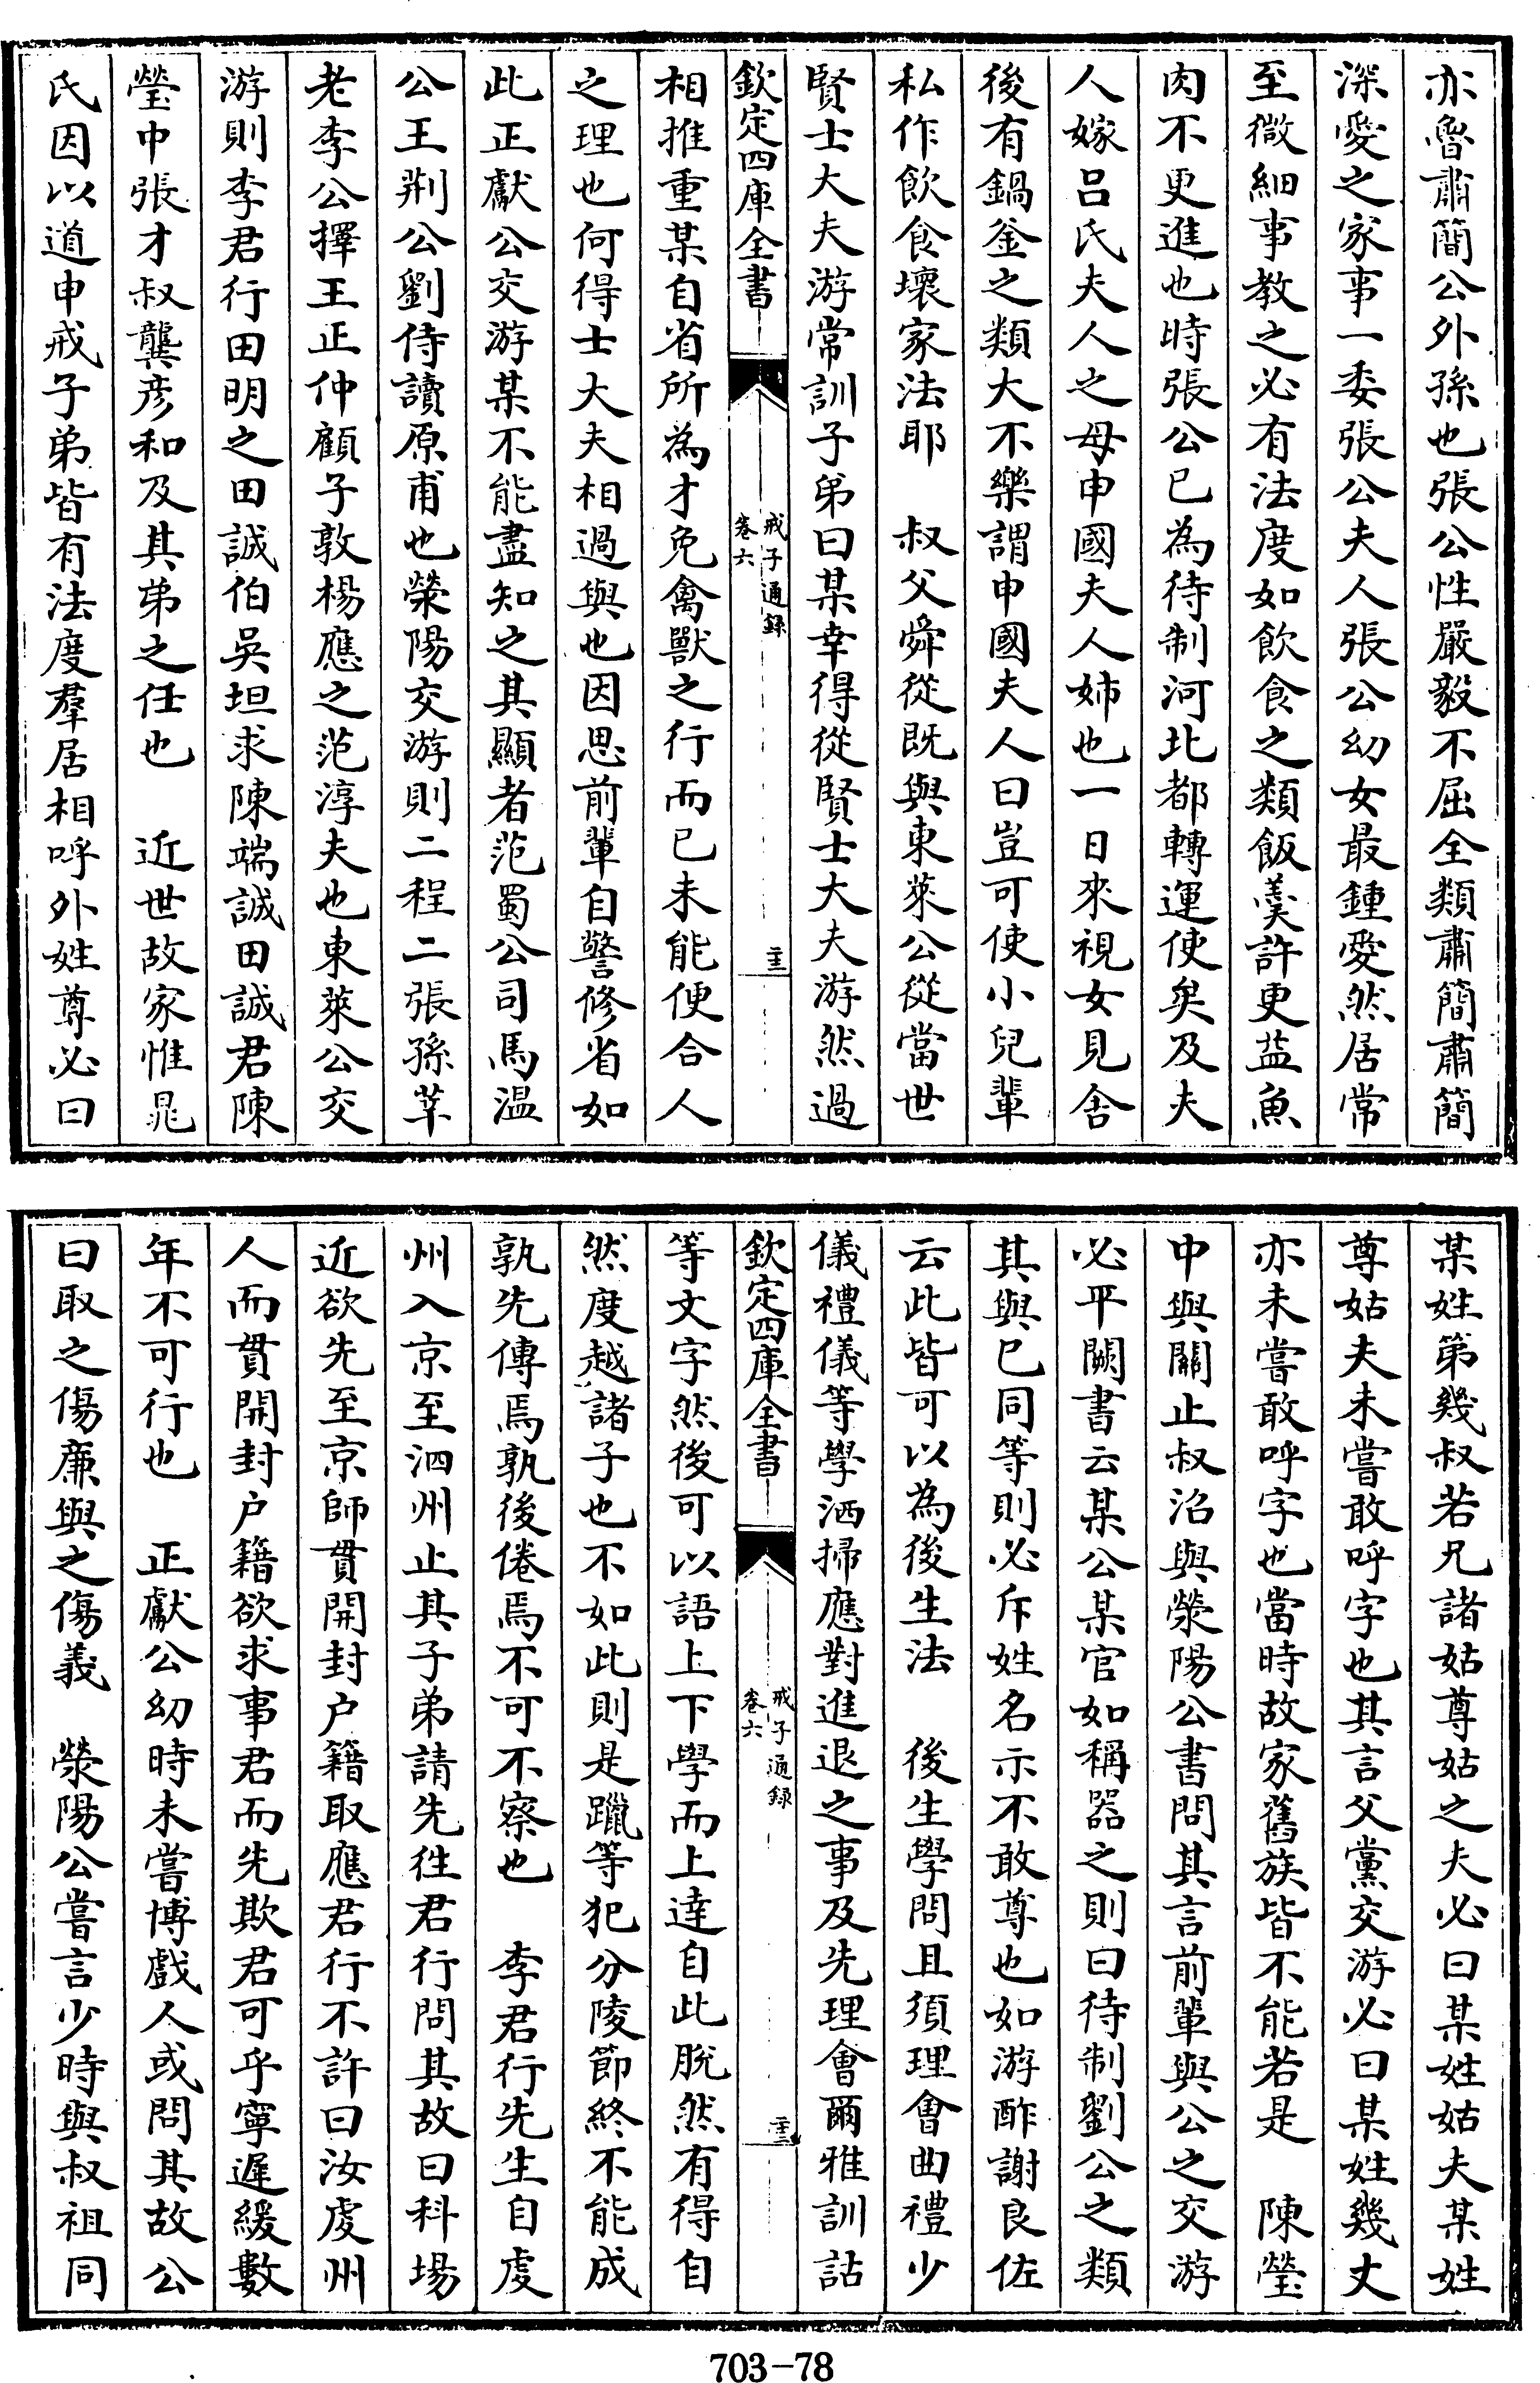 亦魯肅簡公外孫也張公性嚴毅不屈全類肅簡肅簡
深愛之家事一委張公夫人張公幼女最鍾愛然居常
至微細事教之必有法度如飲食之類飯羹許更益魚
肉不更進也時張公已為待制河北都轉運使矣及夫
人嫁呂氏夫人之母申國夫人姊也一日來視女見舍
後有鍋釜之類大不樂謂申國夫人曰豈可使小兒輩
私作飲食壞家法耶　叔父舜從既與東萊公從當世
賢士大夫游常訓子弟曰某幸得從賢士大夫游然過
欽定四庫全書
戒子通錄
卷六
相推重某自省所為才免禽獸之行而已未能便合人
之理也何得士大夫相過與也因思前輩自警修省如
此正獻公交游某不能盡知之其顯者范蜀公司馬温
公王荆公劉侍讀原甫也滎陽交游則二程二張孫莘
老李公擇王正仲顧子敦楊應之范淳夫也東萊公交
游則李君行田明之田誠伯吳坦求陳端誠田誠君陳
瑩中張才叔龔彦和及其弟之任也　近世故家惟晁
氏因以道申戒子弟皆有法度羣居相呼外姓尊必曰
某姓第幾叔若兄諸姑尊姑之夫必曰某姓姑夫某姓
尊姑夫未嘗敢呼字也其言父黨交游必曰某姓幾丈
亦未嘗敢呼字也當時故家舊族皆不能若是　陳瑩
中與關止叔沼與滎陽公書問其言前輩與公之交游
必平闕書云某公某官如稱器之則曰待制劉公之類
其與已同等則必斥姓名示不敢尊也如游酢謝良佐
云此皆可以為後生法　後生學問且須理會曲禮少
儀禮儀等學洒掃應對進退之事及先理會爾雅訓詁
欽定四庫全書
戒子通錄
卷六
等文字然後可以語上下學而上達自此脫然有得自
然度越諸子也不如此則是躐等犯分陵節終不能成
孰先傳焉孰後倦焉不可不察也　李君行先生自虔
州入京至泗州止其子弟請先徃君行問其故曰科場
近欲先至京師貫開封户籍取應君行不許曰汝虔州
人而貫開封户籍欲求事君而先欺君可乎寧遲緩數
年不可行也　正獻公幼時未嘗博戲人或問其故公
曰取之傷廉與之傷義　滎陽公嘗言少時與叔祖同
703-78